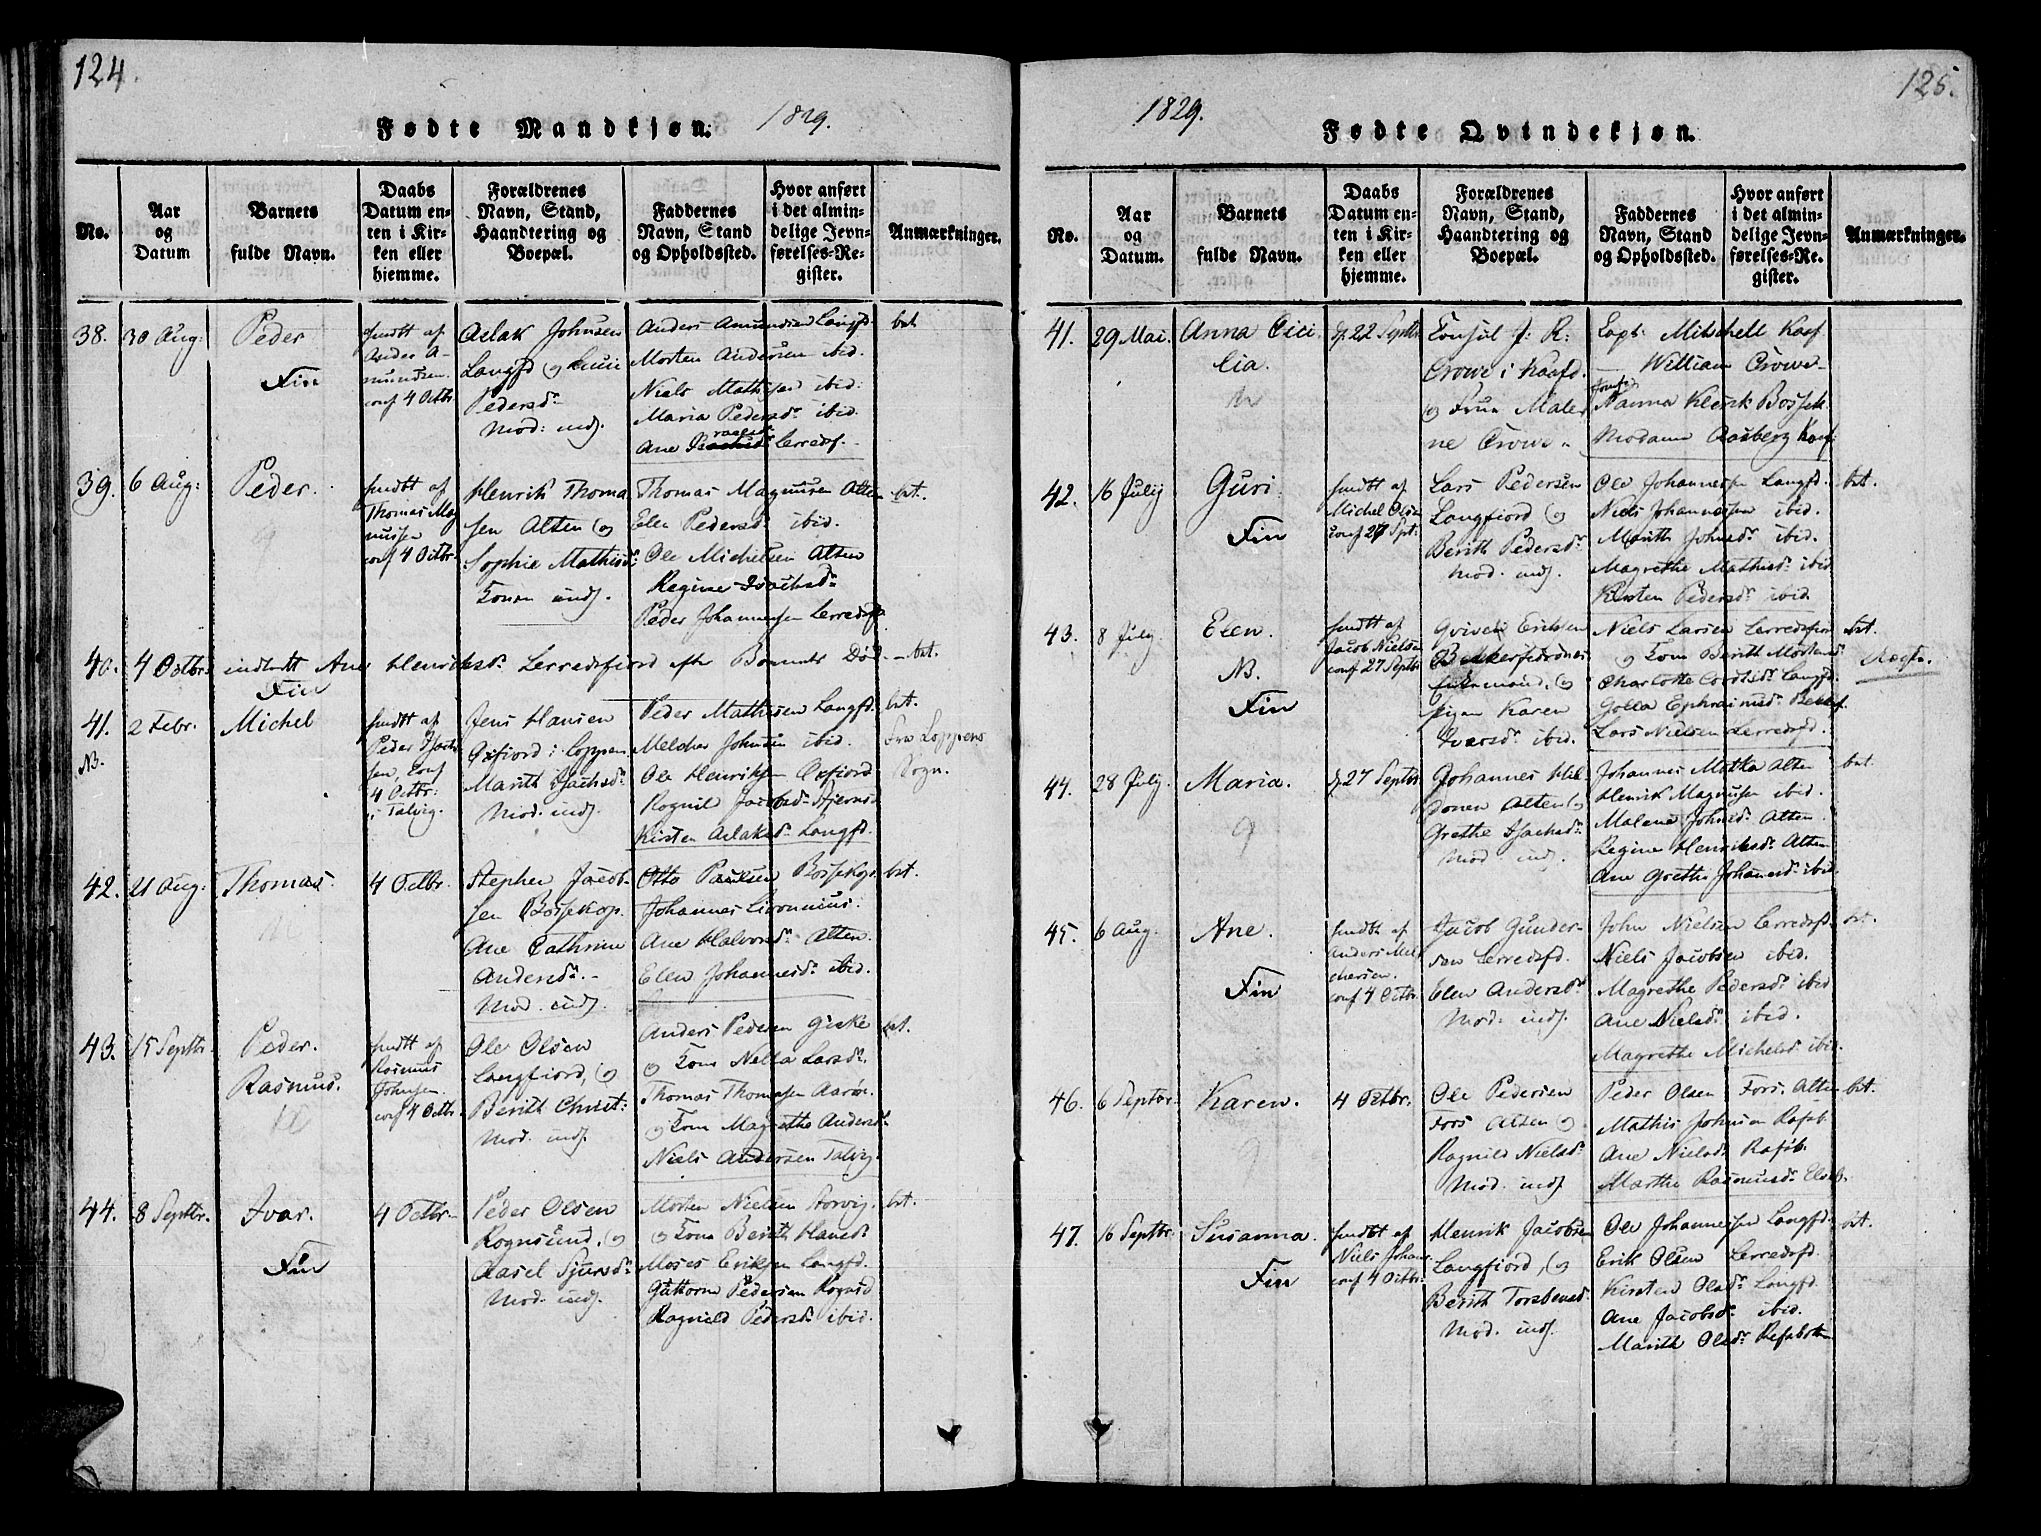 124.
Fødte Mandkjøn. 1829.
No.
Aar
og
Datum
Barnets
fulde Navn.
Daabs
Datum en-
ten i Kir-
ken eller
hjemme.
Forældrenes
Navn, Stand,
Haandtering og
Boepæl.
Faddernes
Navn, Stand
og Opholdssted.
Hvor anført
i det almin-
delige Jevn-
førelses-Re-
gister.
Anmærkninger.
38. 30 Aug: Peder
Fin
hmdbt af
Anders A-
mundsen
conf 4 Octbr.
Aslak Johnsen
Langfd og
Pedersdr
Mod: indf.
Anders Amundsen Langfd.
Morten Andersen ibid.
Niels Mathisen ibid:
Maria Pedersdr ibid.
Ane Lerredsf.
bet
39. 6 Aug: Peder.
hmdbt af
Thomas Mag
nussen
conf 4 Octbr.
Henrik Thoma
sen Alten og
Sophie Mathisdr
Konen indf.
Thomas Magnusen Alten
Elen Pedersdr ibid.
Ole Michelsen Alten
Regine Isachsdr
Peder Johannesen Lerredsfd
bet.
40. 4 Octbr. indledt Ane Henriksdr Lerredsfiord efter Barnets Død. bet.
Fin
41. 2 Febr. Michel
NB.
hmdbt af
Peder Isach
sen, conf
4 Octbr:
i Talvig.
Jens Hansen
Oxfiord i Loppen
Marith Isachsdr
Mod. indf.
Peder Mathisen Langfd.
Melcher Johnsen ibid.
Ole Henriksen Oxfiord
Rognil Jacobsd Stjernsd
Kirsten Aslaksdr Langfd.
bet.
Fra Loppens
Sogn.
42. 21 Aug: Thomas. 4 Octbr.
Stephen Jacob-
sen Bossekop.
Ane Cathrine
Andersdr.
Mod. indf.
Otto Paulsen Bossekop
Johannes
Ane Halvorsdr Alten.
Elen Johannesdr ibid.
bet.
43. 15 Septbr. Peder.
Rasmus.
hmdbt af
Rasmus
Johnsen
conf 4 Octbr.
Ole Olsen
Langfiord, og
Berith Christ:
Mod. indf.
Anders Pedersen Giske
og Kone Nella Larsdr.
Thomas Thomasen Aarøn.
og Kone Magrethe Andersdr
Niels Andersen Talvig.
bet.
44. 8 Septbr. Ivar.
Fin
4 Octbr.
Peder Olsen
Rognsund, og
Aasel Sjursdr
Mod. indf.
Morten Nielsen Storvig.
og Kone Berith Hansdr
Moses Eriksen Langfd.
Guttorm Pedersen Rognsd
Ragnild Pedersdr ibid.
bet.
125.
1829. Fødte Qvindekjøn.
No.
Aar
og
Datum.
Barnets
fulde Navn.
Daabs
Datum en-
ten i Kir-
ken eller
hjemme.
Forældrenes
Navn, Stand,
Haandtering og
Boepæl.
Faddernes
Navn, Stand
og Opholdssted.
Hvor anført
i det almin-
delige Jevn-
førelses-Re-
gister.
Anmærkninger.
41. 29 Mai. Anna Ceci
lia.
22 Septbr.
Consul J: R:
Crowe i Kaafd.
og Frue Male
ne Crowe
Capt: Mitchell Kaaf
William Crowe
Jomfr
Nanna Klerck Bossek
Madame Aasberg Kaaf:
42. 16 July Guri.
Fin
hmdbt af
Michel Olsen
conf 27 Spt:
Lars Pedersen
Langfiord og
Berith Pedersdr
Mod. indf.
Ole Johannessen Langfd.
Niels Johannessen ibid.
Marith Johnsdr ibid.
Magrethe Mathisdr ibid
Kirsten Pedersdr ibid
bet.
43. 8 July. Elen.
NB.
Fin
hmdbt af
Jacob Nielsen
conf 27 Septbr
Eriksen
og
pigen Karen
Ivarsdr ibid.
Niels Larsen Lerredsfiord
og Kone Berith Mortensdr
Charlotte Langfd.
Golla Ephraimsdr
Lars Nielsen Lerredsfd.
bet.
Uægte.
44. 28 July. Maria. 27 Septbr
Johannes Hil-
donen Alten og
Grethe Isachsdr
Mod indf.
Johannes Motka Alten
Henrik Magnusen ibid.
Malene Johnsdr Alten
Regine Henriksdr Alten
Ane Grethe Johansdr ibid.
bet.
45. 6 Aug. Ane.
Fin
hmdbt af
Anders Mel
chersen.
conf 4 Octbr.
Jacob Gunder-
sen Lerredsfd.
Elen Andersdr
Mod. indf.
John Nielsen Lerredsfd.
Niels Jacobsen ibid.
Magrethe Pedersdr ibid
Ane Nielsdr ibid.
Magrethe Michelsdr ibid.
bet.
46. 6 Septbr. Karen. 4 Octbr.
Ole Pedersen
Fors Alten og
Ragnild Nielsdr
Mod. indf
Peder Olsen Fors. Alten
Mathis Johnsen Rafsb.
Ane Nielsdr Rafsb.
Marthe Rasmusdr Elveb.
bet.
47. 16 Septbr. Susanna.
Fin
hmdbt af
Niels Johans.
conf 4 Octbr.
Henrik Jacobsen
Langfiord, og
Berith Torsbensdr
Mod. indf.
Ole Johannesen Langfd.
Erik Olsen Lerredsfd.
Kirsten Olsdr Langfd.
Ane Jacobsdr ibid.
Marith Olsdr Refsbotn
bet.